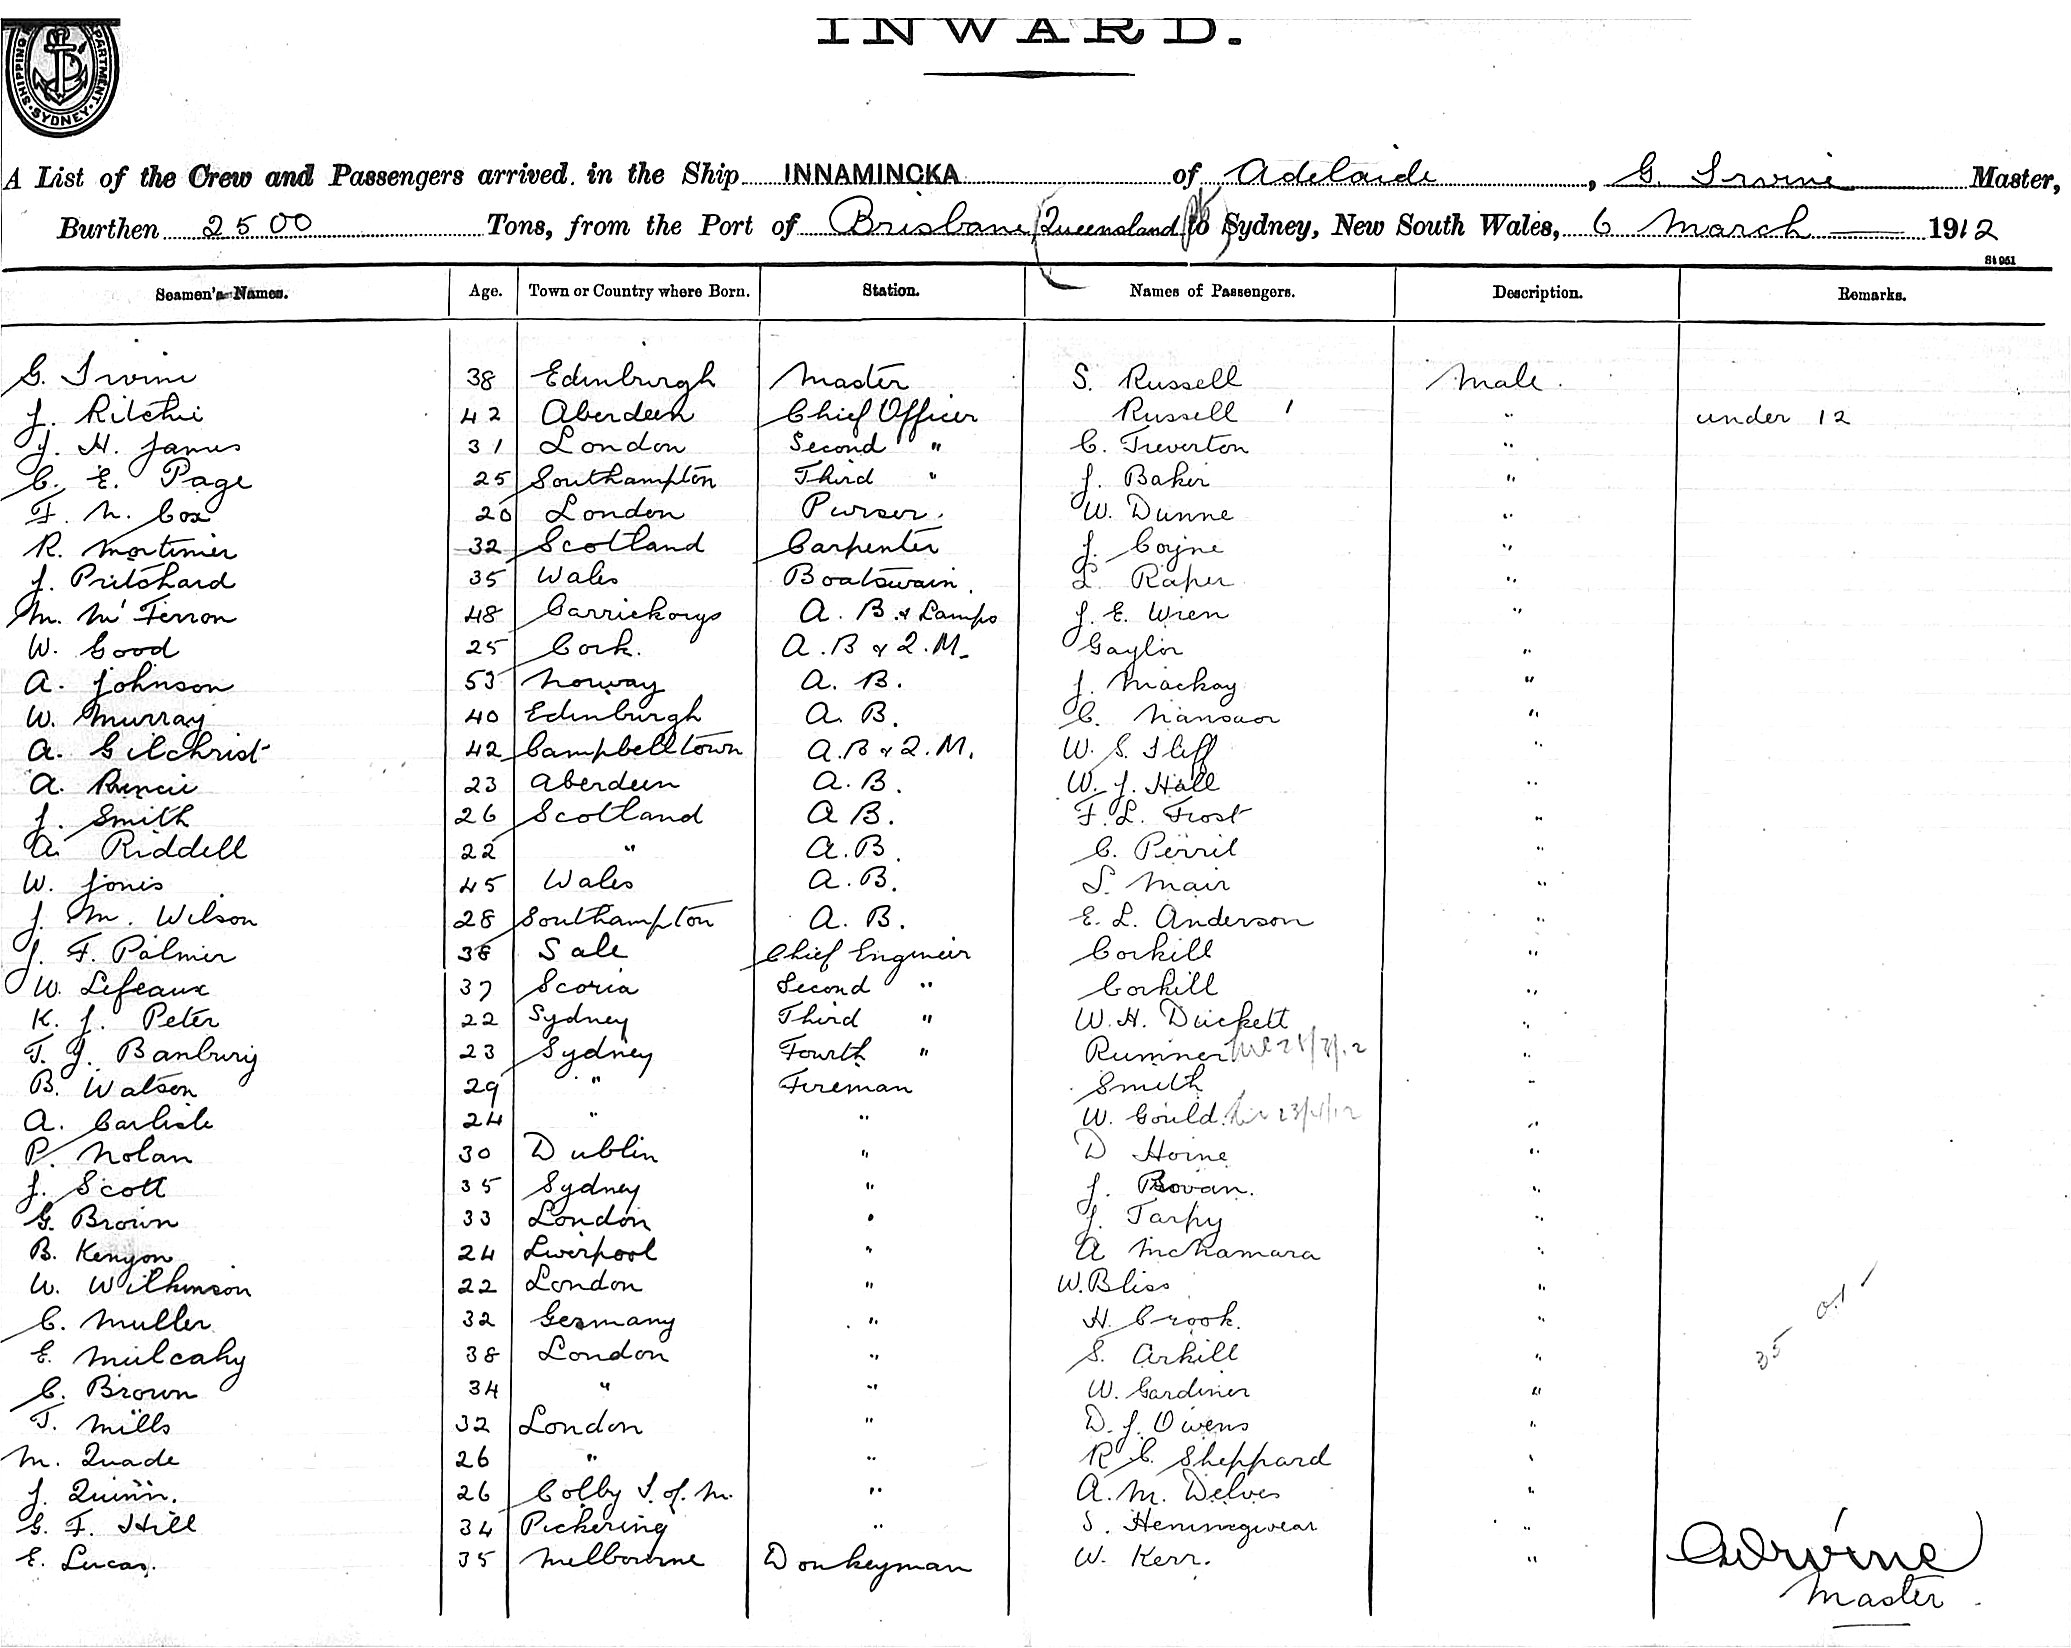 INWARD.
SHIPPING DEPARTMENT. SYDNEY
A List of the Crew and Passengers arrived in the Ship INNAMINCKA of Adelaide, G. Irvine Master,
Burthen 2500 Tons, from the Port of Brisbane, Queensland to Sydney, New South Wales, 6 March 1912
St 951
Seamen's Names. Age. Town or Country where Born. Station. Names of Passengers. Description. Remarks.
G. Irvine 38 Edinburgh Master S. Russell Male.
J. Ritchie 42 Aberdeen Chief Officer Russell 1 " under 12
J. H. James 31 London Second " C. Treverton "
C. E. Page 25 Southampton Third " J. Baker "
F. N. Cox 20 London Purser. W. Dunne "
R. Mortimer 32 Scotland Carpenter J. Coyne "
J. Pritchard 35 Wales Boatswain. L. Raper "
M. McFerron 48 A. B. & Lamps J. E. Wren "
W. Good 25 Cork. A. B & 2. M. Gaylor "
A. Johnson 53 Norway A. B. J. Mackay "
W. Murray 40 Edinburgh A. B. C. "
A. Gilchrist 42 Campbelltown A. B & 2. M. W. S. Iliff "
A. Rennie 23 Aberdeen A. B. W. J. Hall "
J. Smith 26 Scotland A B. F. L. Frost "
A. Riddell 22 " A. B. C. Perril "
W. Jones 45 Wales A. B. S. Mair "
J. M. Wilson 28 Southampton A. B. E. L. Anderson "
J. F. Palmer 38 Sale Chief Engineer Corkill "
W. Lefeaux 37 Scoria Second " Corkill "
K. J. Peter 22 Sydney Third " W. H. Duckett "
T. J. Banbury 23 Sydney Fourth " Rumner "
B. Watson 29 " Fireman Smith "
A. Carlisle 24 " " W. Gould. "
P. Nolan 30 Dublin " D Horne "
J. Scott 35 Sydney " J. Bovan. "
G. Brown 33 London " J. Tarpy "
B. Kenyon 24 Liverpool " A McNamara "
W. Wilkinson 22 London " W. Bliss "
C. Muller 32 Germany " H. Crook. "
E. Mulcahy 38 London " S. Arkill " 35
C. Brown 34 " " W. Gardiner "
T. Mills 32 London " D. J. Owens "
M. Quade 26 " " R. C. Sheppard "
J. Quinn. 26 Colby I. of. M. " A. M. Delves "
G. F. Hill 34 Pickering " S. "
E. Lucas. 35 Melbourne Donkeyman W. Kerr. "
G Irvine
Master